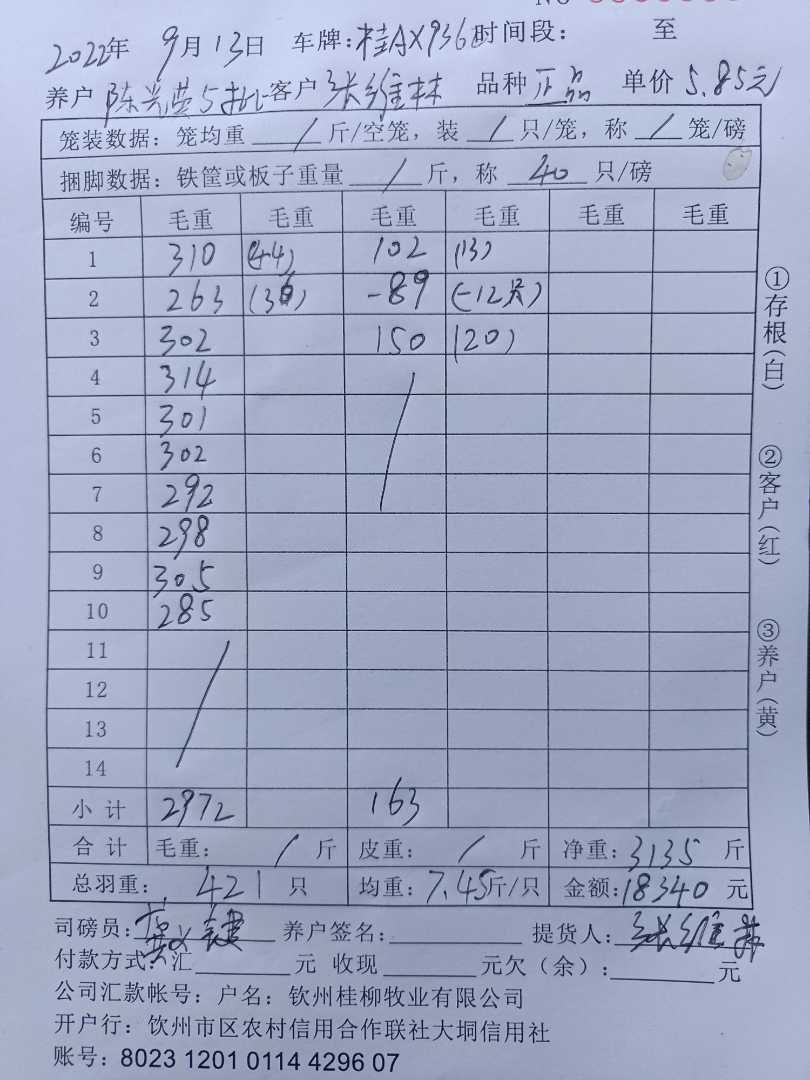 2022年 9月13日 车牌:桂AX936 时间段: 至
养户 陈光英5批 客户 张维林 品种 正品 单价 5.85元
笼装数据:笼均重 / 斤/空笼,装 / 只/笼,称 / 笼/磅
捆脚数据:铁筐或板子重量 / 斤,称 40 只/磅
编号 毛重 毛重 毛重 毛重 毛重 毛重
1 310 (44) 102 (13)
2 263 (36) -89 (-12只)
3 302 150 (20)
4 314
5 301
6 302
7 292
8 298
9 305
10 285
11
12
13
14
小计 2972 163
合计 毛重: / 斤 皮重: / 斤 净重:3135 斤
总羽重: 421 只 均重:7.45斤/只 金额:18340 元
司磅员: 养户签名: 提货人:张维林
付款方式:汇 元 收现 元欠(余): 元
公司汇款帐号:户名:钦州桂柳牧业有限公司
开户行:钦州市区农村信用合作联社大垌信用社
账号:8023 1201 0114 4296 07
①存根(白)
②客户(红)
③养户(黄)